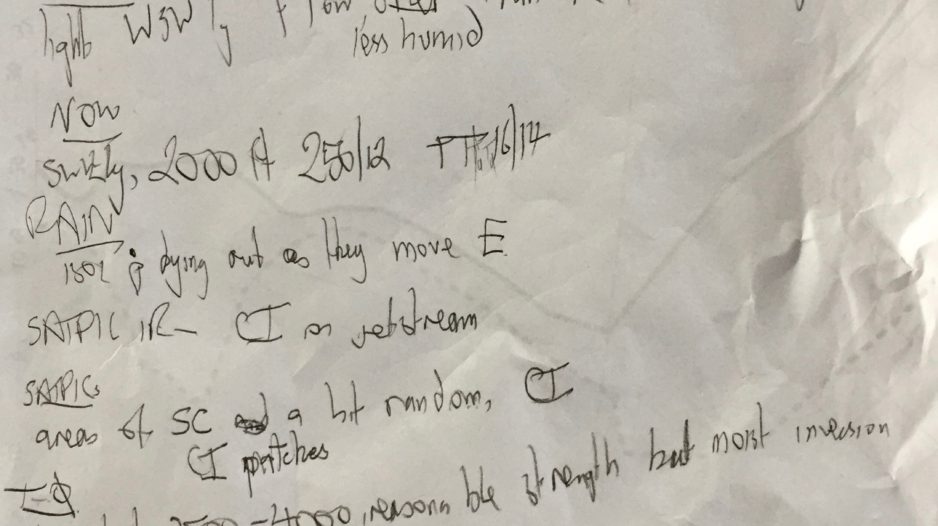 light WSW ly + low
less humid
NOW
SWLY, 2000 ft 250/12 TT 16/14
RAIN
ISOL dying out as they move E.
SATPIC IR - CI on jetstream
SATPIC
areas of SC a bit random, CI
CI patches
T-Φ
-4000, reasonable strength but moist inversion